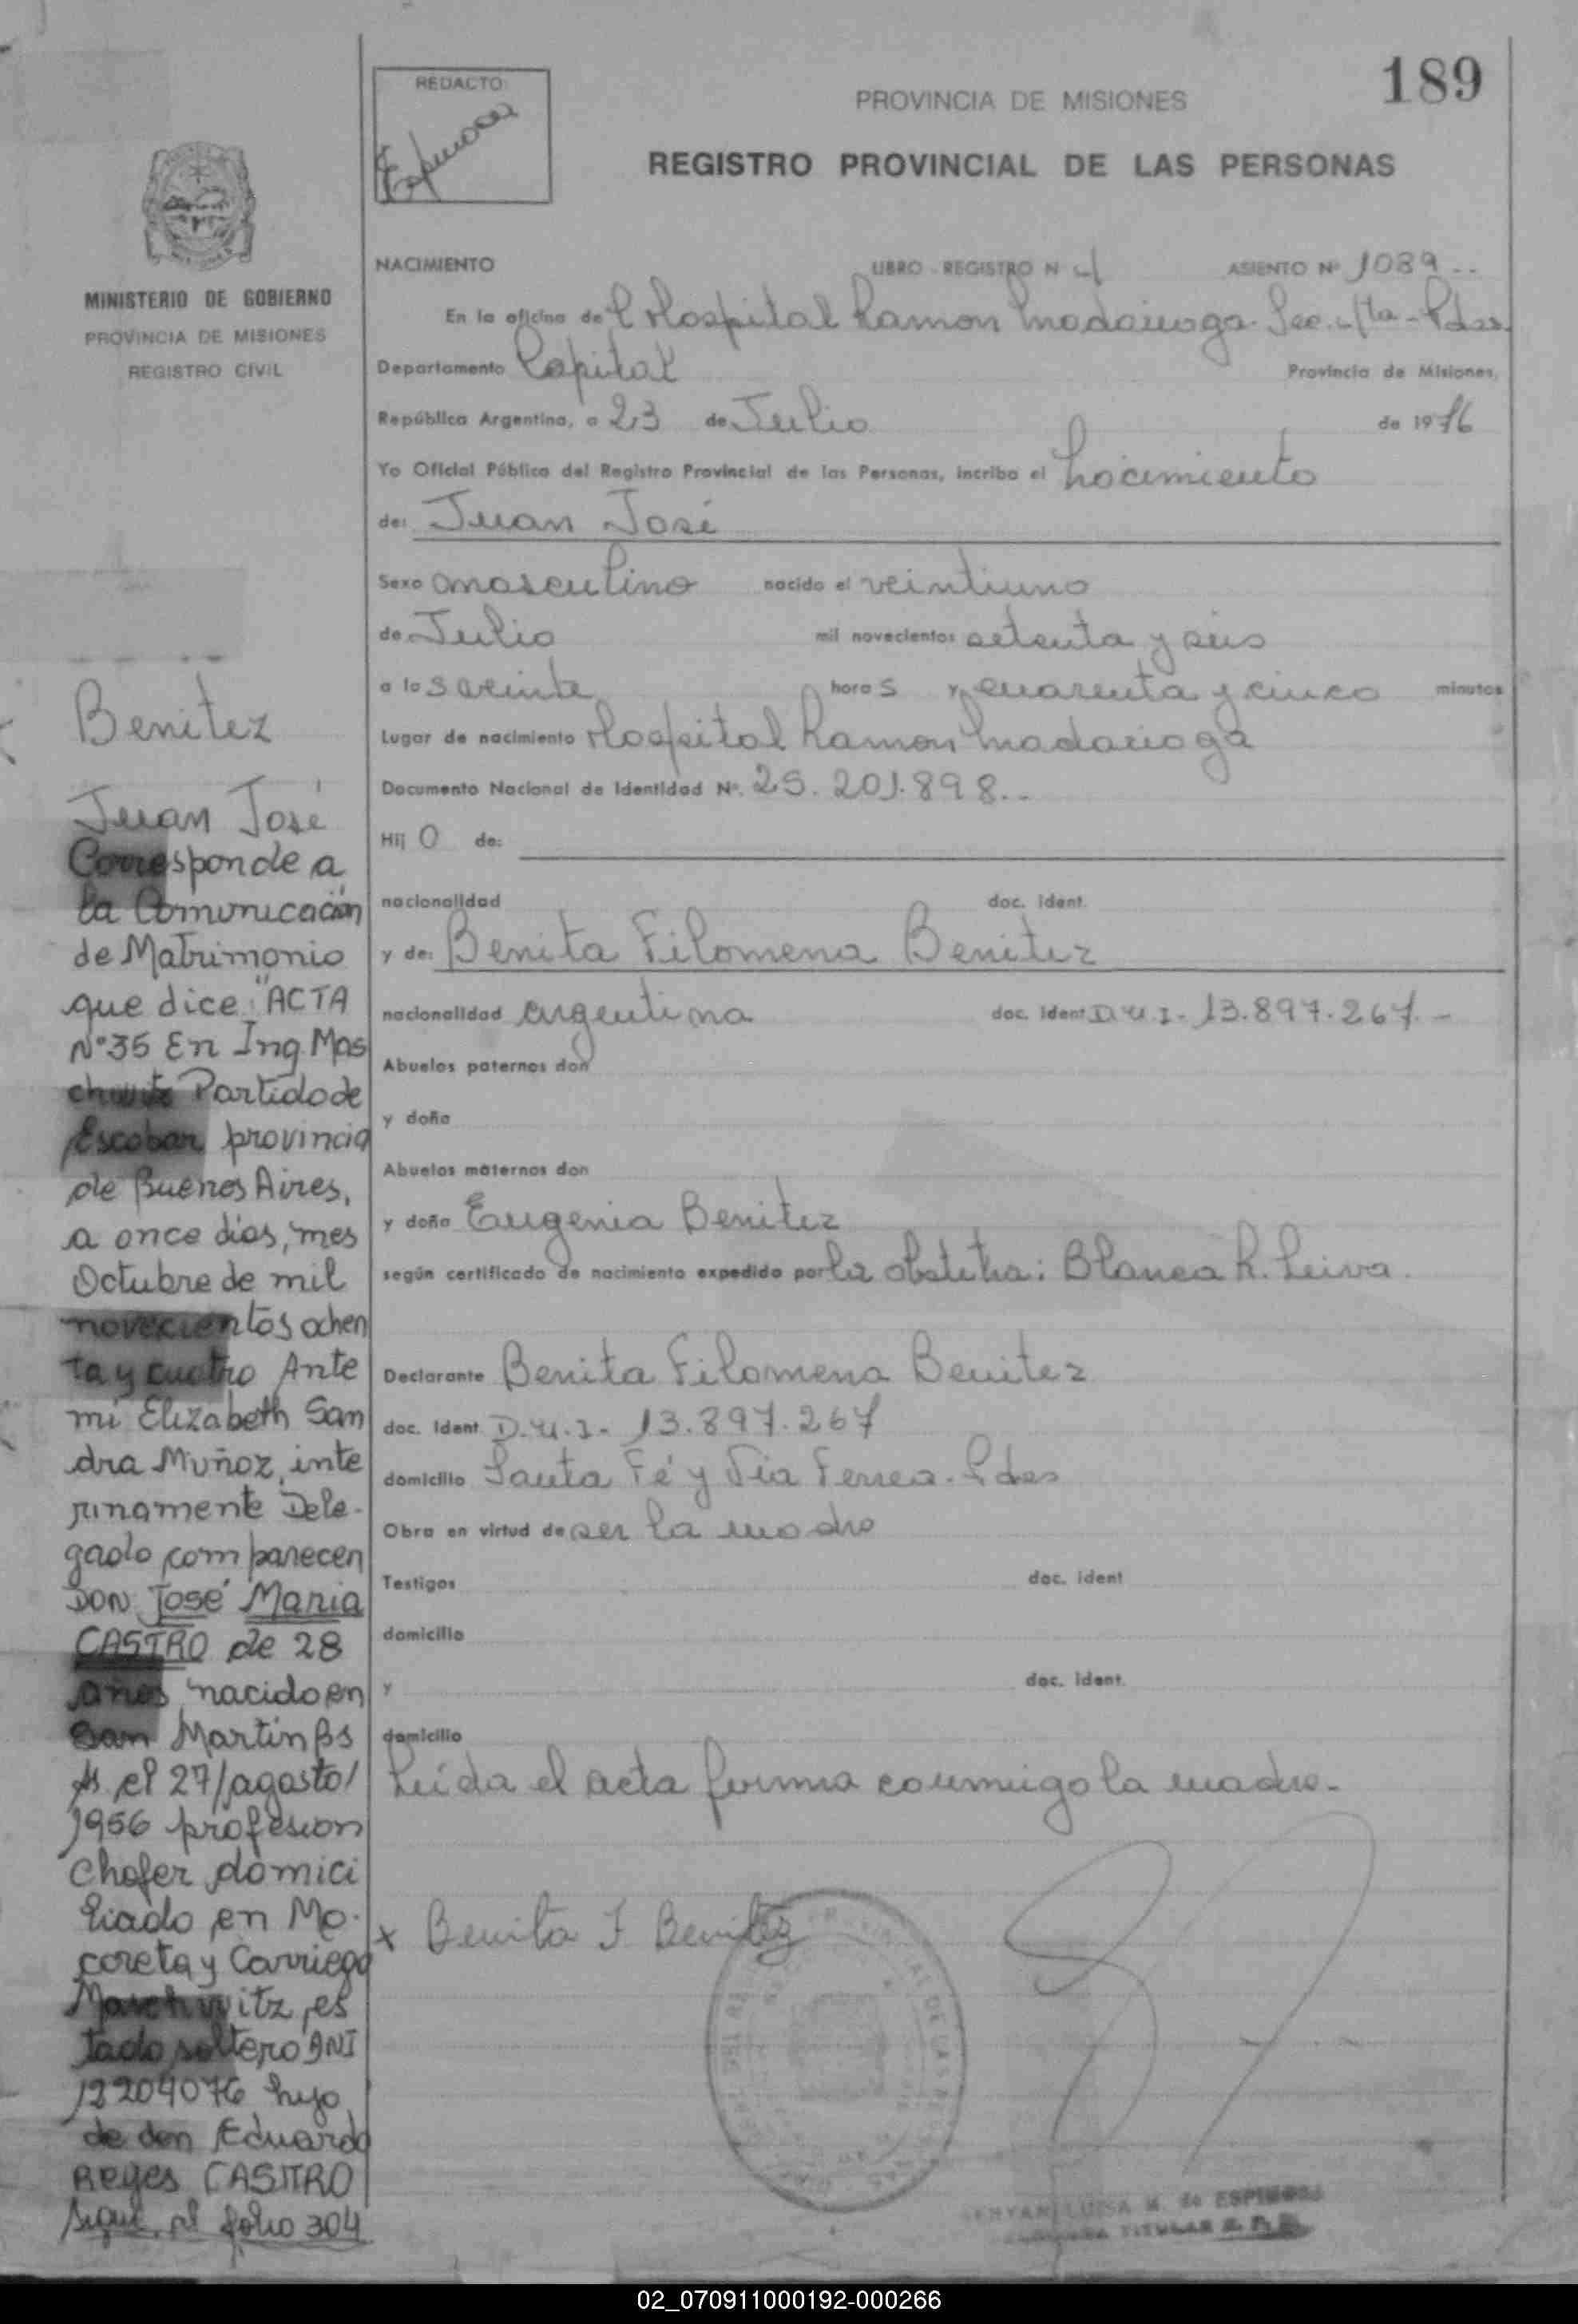 189
REDACTO:
Espinosa
PROVINCIA DE MISIONES
REGISTRO PROVINCIAL DE LAS PERSONAS
MINISTERIO DE GOBIERNO
PROVINCIA DE MISIONES
REGISTRO CIVIL
NACIMIENTO LIBRO - REGISTRO N 4 ASIENTO Nº 1089--
En la oficina del Hospital Ramon Madariaga - Sec. 4ta - Pdas.
Departamento Capital Provincia de Misiones,
República Argentina, a 23 de Julio de 1976
Yo Oficial Público del Registro Provincial de las Personas, incribo el Nacimiento
de: Juan José
Sexo masculino nacido el veintiuno
de Julio mil novecientos setenta y seis
a las veinte horas y cuarenta y cinco minutos
Lugar de nacimiento Hospital Ramon Madariaga
Documento Nacional de Identidad Nº. 25.201.898--
Hij o de:
nacionalidad doc. ident.
y de: Benita Filomena Benitez
nacionalidad argentina doc. ident D.N.I- 13.897.267-
Abuelos paternos don
y doña
Abuelos maternos don
y doña Eugenia Benitez
según certificado de nacimiento expedido por la obstetra: Blanca R. Leiva.
Declarante Benita Filomena Benitez
doc. ident D.N.I- 13.897.267
domicilio Santa Fé y Via Ferrea - Pdas
Obra en virtud de ser la madre
Testigos doc. ident
domicilio
y doc. ident.
domicilio
Leida el acta firma conmigo la madre-
x Benita F Benitez
LUISA M. de ESPINOSA
TITULAR
Benitez
Juan José
Corresponde a
la Comunicación
de Matrimonio
que dice: "ACTA
Nº35 En Ing. Mas
chwitz Partido de
Escobar provincia
de Buenos Aires,
a once dias, mes
Octubre de mil
novecientos ochen
ta y cuatro Ante
mi Elizabeth San
dra Muñoz, inte
rinamente Dele-
gado comparecen
DON José Maria
CASTRO de 28
años nacido en
San Martin Bs
As el 27/agosto/
1956 profesion
Chofer domici
liado en Mo-
coreta y Carriego
Maschwitz, es
tado soltero DNI
12209076 hijo
de don Eduardo
Reyes CASTRO
Sigue al folio 304
02_070911000192-000266